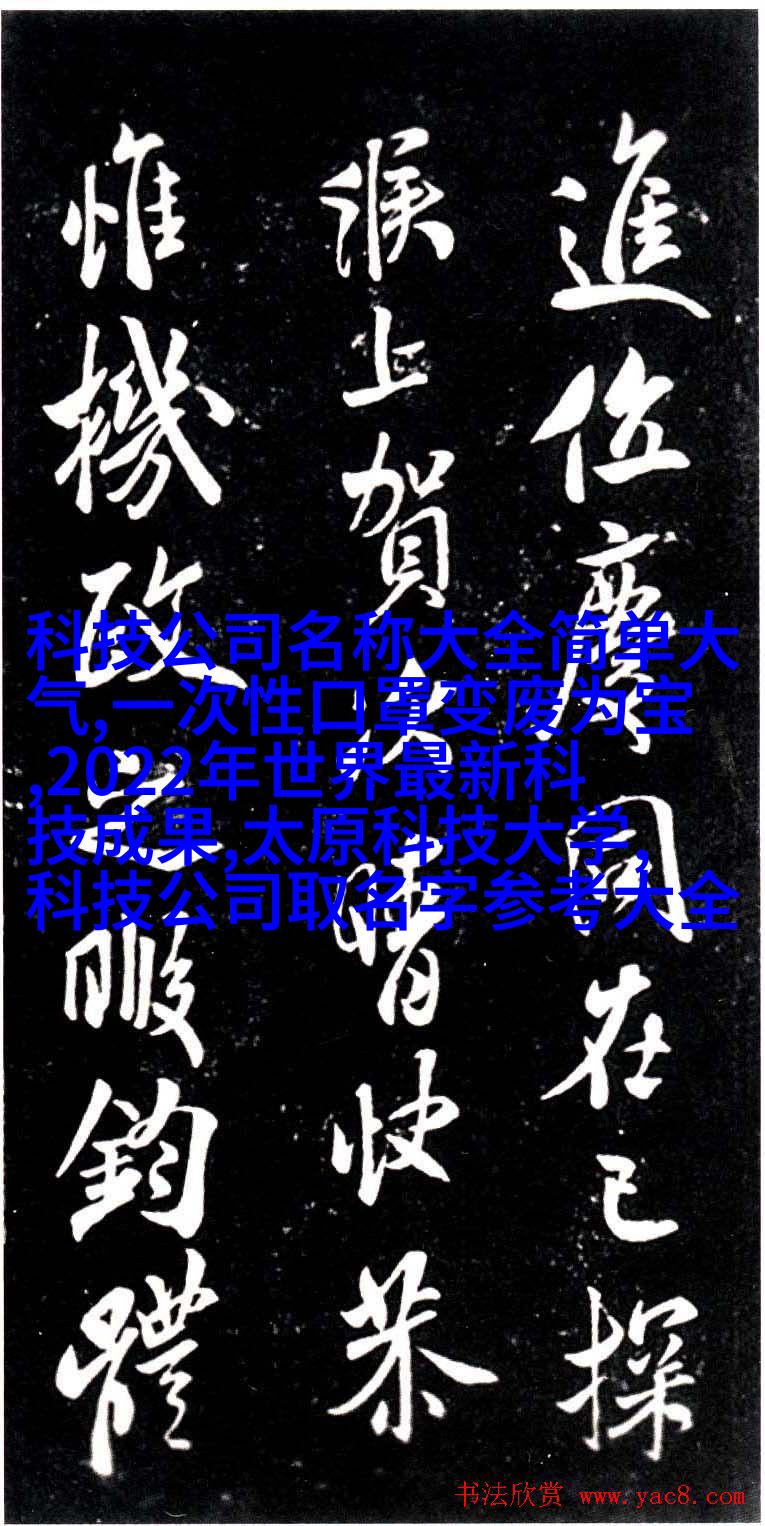 進位慶同在已探
候上賀次晴快恭
惟機政之暇鈞體
科技公司名称大全简单大
气,一次性口罩变废为宝
,2022年世界最新科
技成果,太原科技大学,
科技公司取名字参考大全
书法欣赏 www.yac8.com